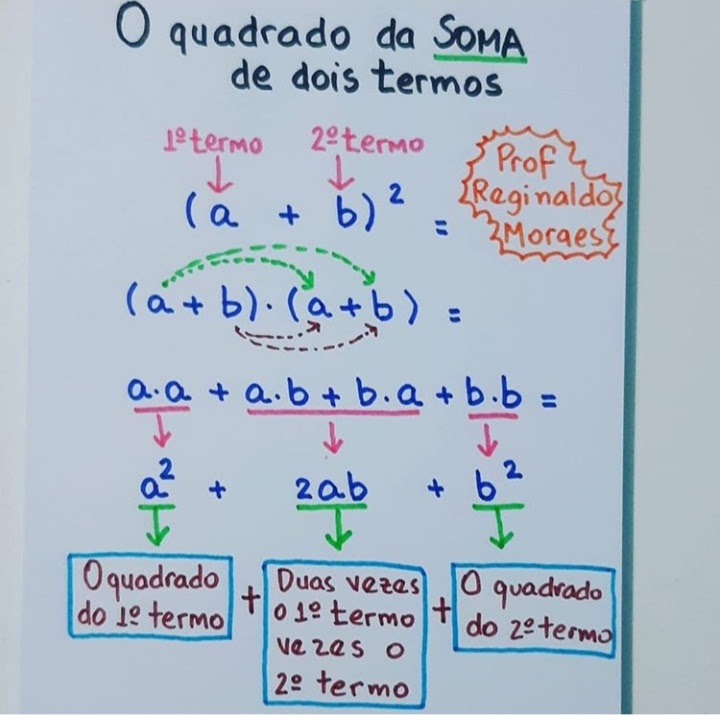 O quadrado da SOMA
de dois termos
1º termo 2º termo
(a + b)² =
Prof
Reginaldo
Moraes
(a + b) · (a + b) =
a.a + a.b + b.a + b.b =
a² + 2ab + b²
O quadrado
do 1º termo
+
Duas vezes
o 1º termo
vezes o
2º termo
+
O quadrado
do 2º termo